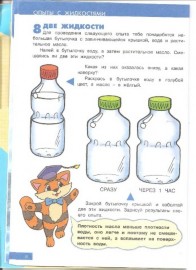 ОПЫТЫ С ЖИДКОСТЯМИ
8 ДВЕ ЖИДКОСТИ
Для проведения следующего опыта тебе понадобятся не-
большая бутылочка с закручивающейся крышкой, вода и расти-
тельное масло.
Налей в бутылочку воду, а затем растительное масло. Сме-
шались ли две эти жидкости?
Какая из них оказалась внизу, а какая
наверху?
Раскрась в бутылочке воду в голубой
цвет, а масло - в жёлтый.
СРАЗУ
ЧЕРЕЗ 1 ЧАС
Закрой бутылочку крышкой и взболтай
две эти жидкости. Зарисуй результаты сво-
его опыта.
Плотность масла меньше плотности
воды, оно легче и поэтому не смешивается
с ней, а всплывает на поверх-
ность воды.